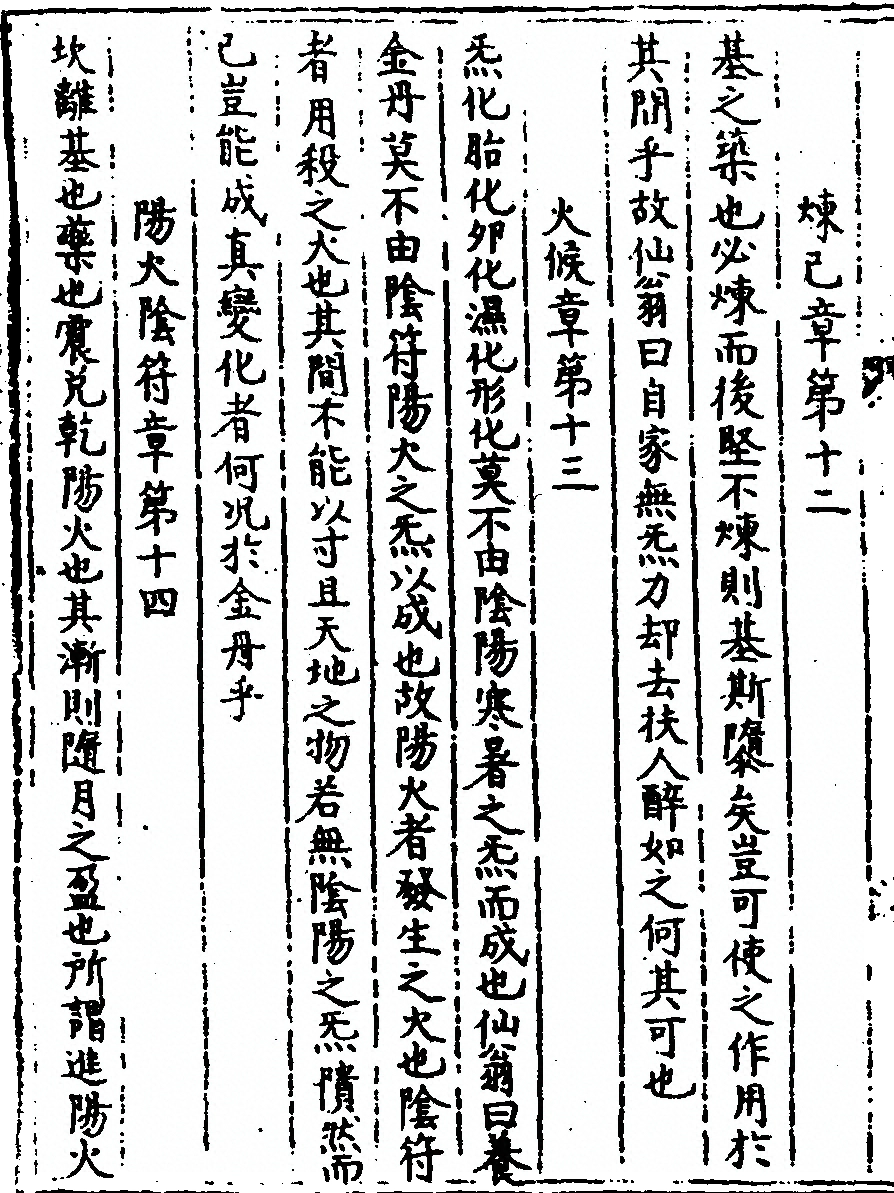 煉己章第十二
基之築也必煉而後堅不煉則基斯隳矣豈可使之作用於
其間乎故仙翁曰自家無炁力却去扶人醉如之何其可也
火候章第十三
炁化胎化夘化濕化形化莫不由陰陽寒暑之炁而成也仙翁曰養
金丹莫不由陰符陽火之炁以成也故陽火者發生之火也陰符
者用殺之火也其間不能以寸且天地之物若無陰陽之炁隤然而
已豈能成真變化者何况於金丹乎
陽火陰符章第十四
坎離基也藥也震兌乾陽火也其漸則隨月之盈也所謂進陽火